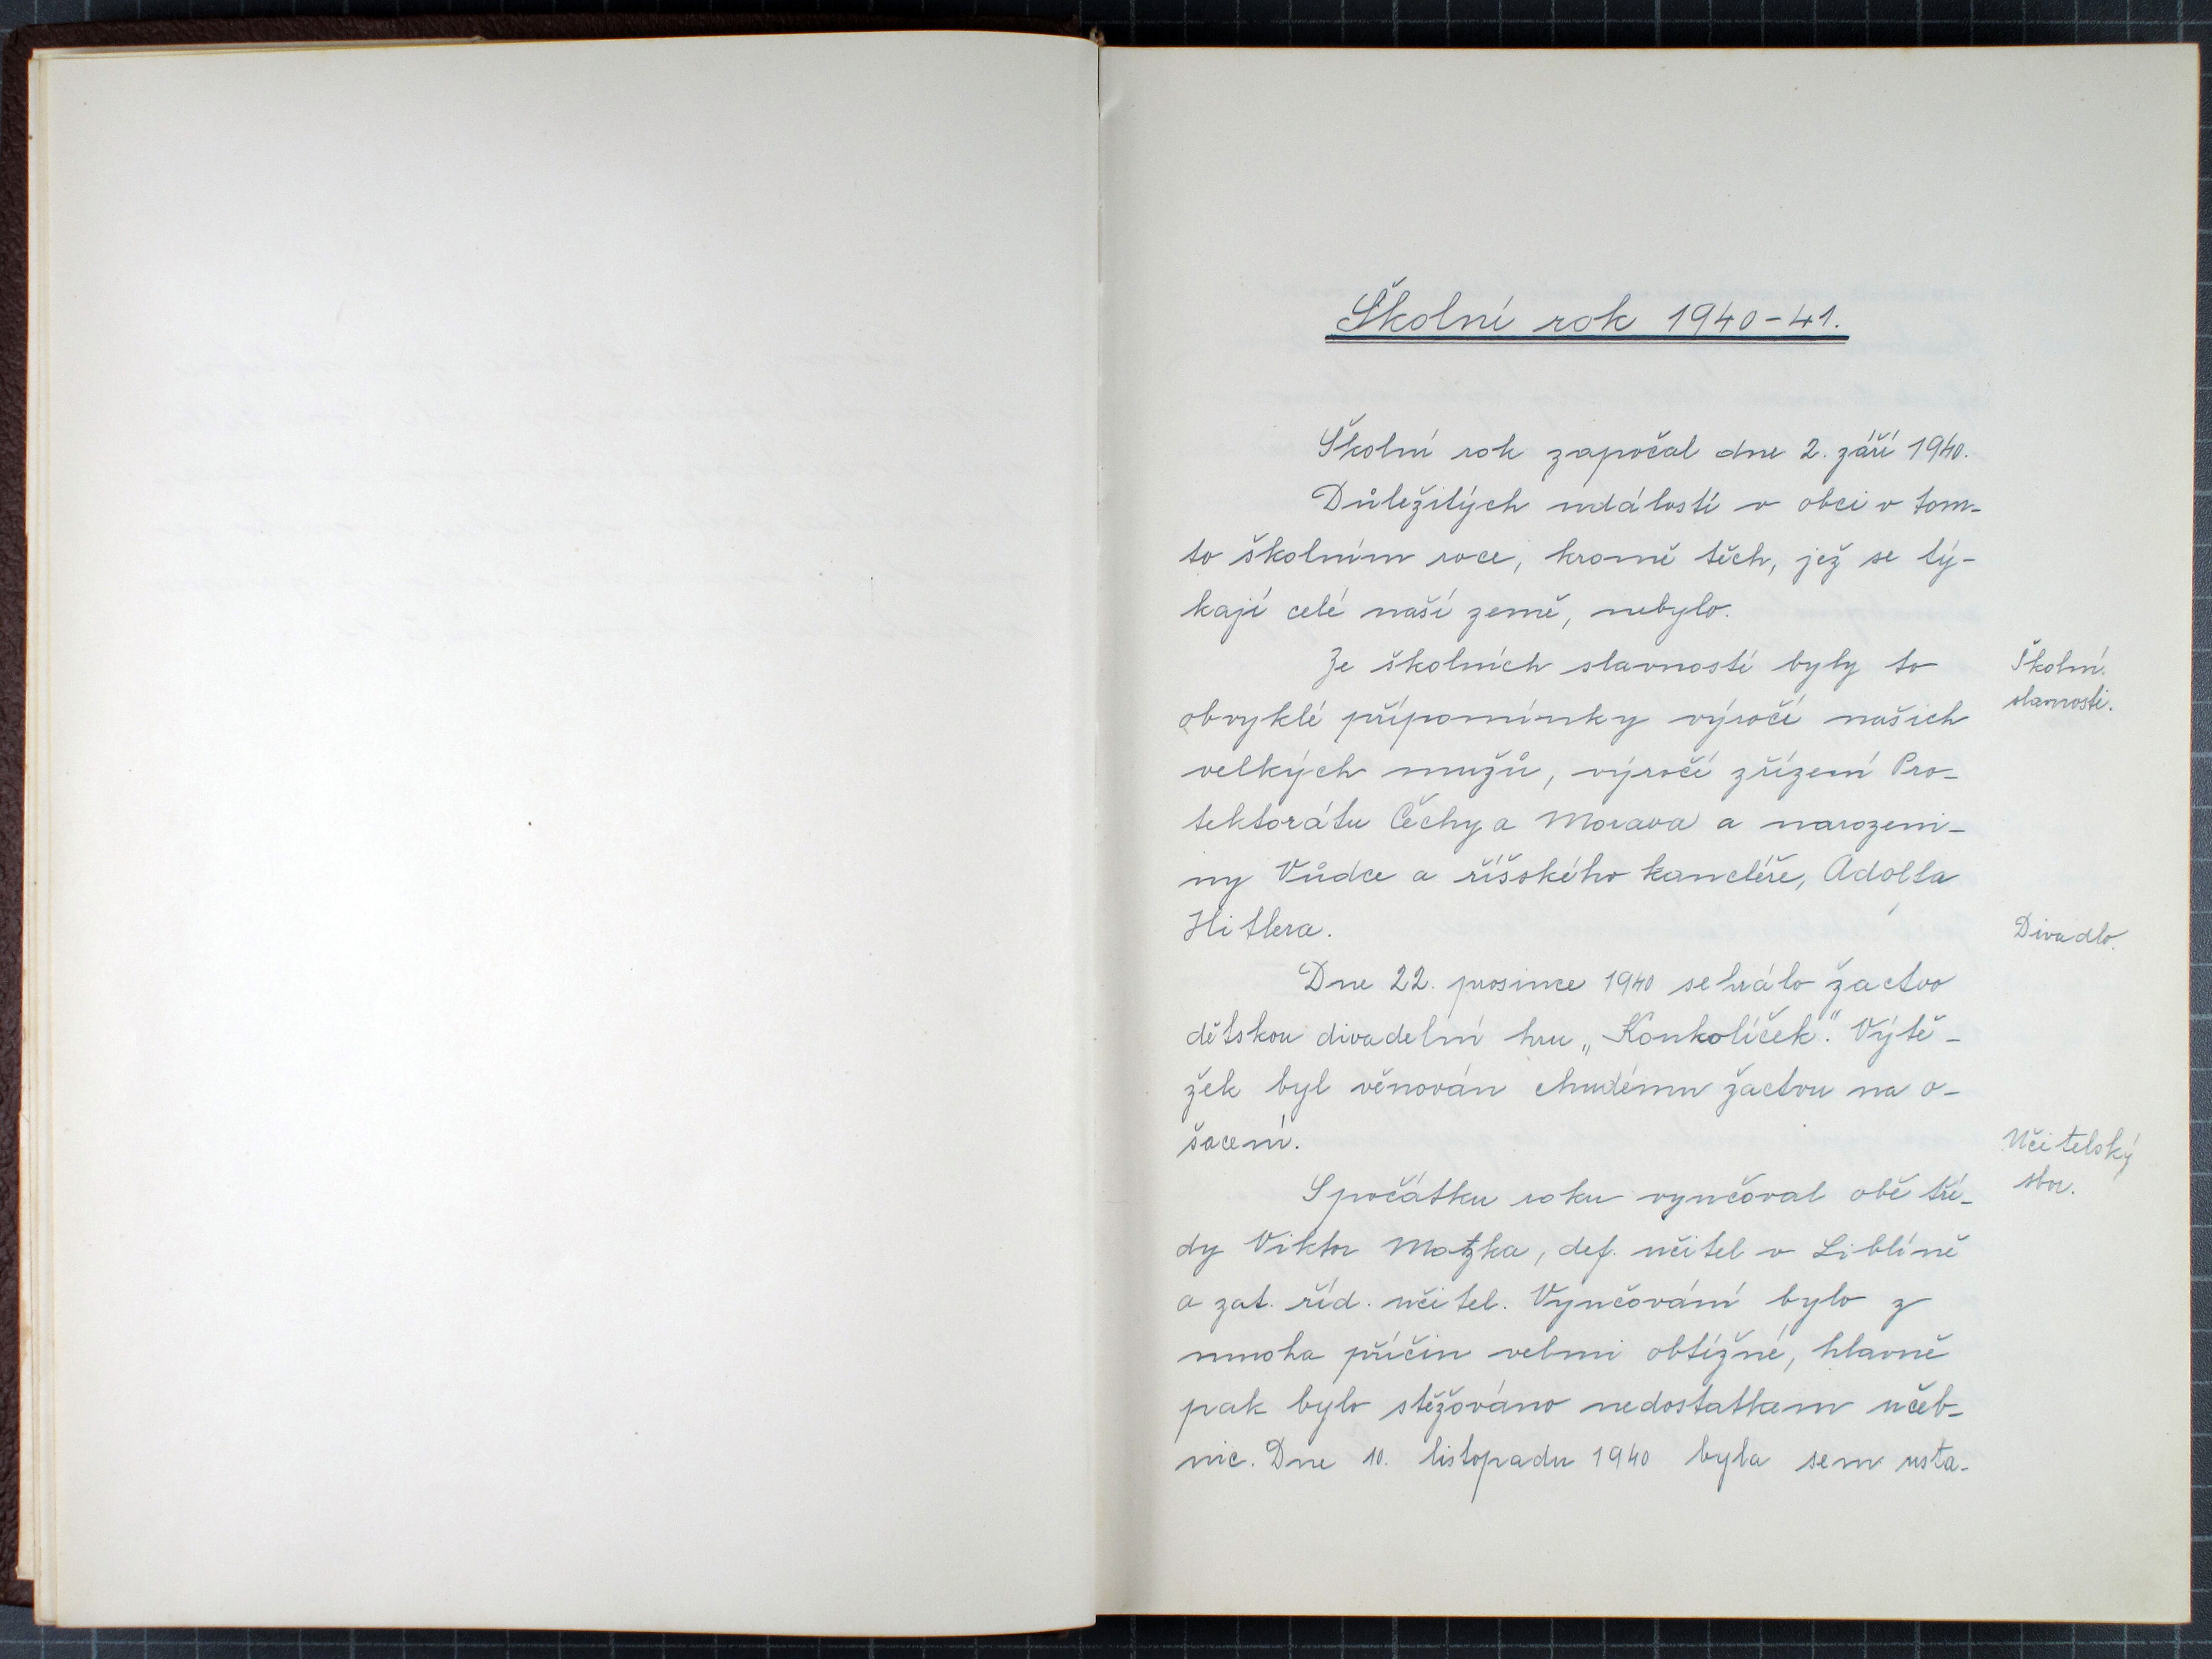 Školní rok 1940-41.
Školní rok započal dne 2. září 1940.
Důležitých událostí v obci v tom-
to školním roce, kromě těch, jež se tý-
kají celé naší země, nebylo.
Ze školních slavností byly to
Školní
slavnosti.
obvyklé připomínky výročí našich
velkých mužů, výročí zřízení Pro-
tektorátu Čechy a Morava a narozeni-
ny Vůdce a říšského kancléře, Adolfa
Hitlera.
Divadlo.
Dne 22. prosince 1940 sehrálo žactvo
dětskou divadelní hru „Konkolíček". Výtě-
žek byl věnován chudému žactvu na o-
šacení.
Učitelský
sbor.
S počátku roku vyučoval obě tří-
dy Viktor Matzka, def. učitel v Liblíně
a zat. říd. učitel. Vyučování bylo z
mnoha příčin velmi obtížné, hlavně
pak bylo stěžováno nedostatkem učeb-
nic. Dne 10. listopadu 1940 byla sem usta-